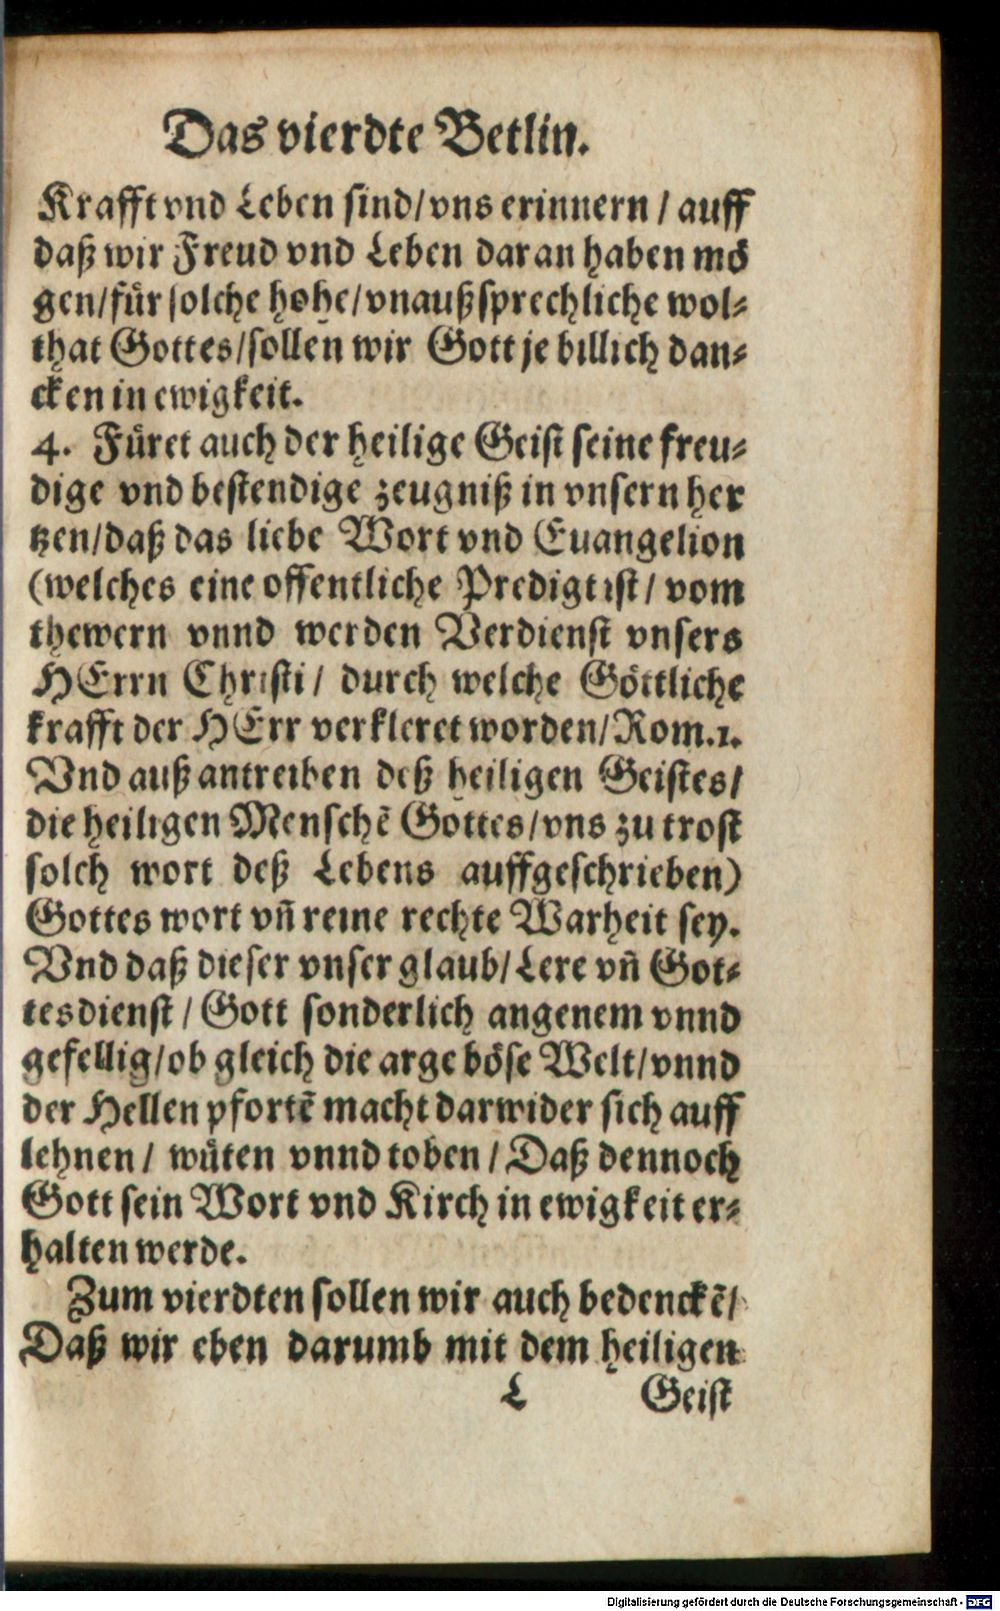 Das vierdte Betlin.
Krafft vnd Leben sind/vns erinnern / auff
daß wir Freud vnd Leben daran haben mö
gen/für solche hohe/vnaußsprechliche wol-
that Gottes/sollen wir Gott je billich dan-
cken in ewigkeit.
4. Füret auch der heilige Geist seine freu-
dige vnd bestendige zeugniß in vnsern her
tzen/daß das liebe Wort vnd Euangelion
(welches eine offentliche Predigt ist/ vom
thewern vnnd werden Verdienst vnsers
HErrn Christi/ durch welche Göttliche
krafft der HErr verkleret worden/Rom.1.
Vnd auß antreiben deß heiligen Geistes/
die heiligen Menschẽ Gottes/vns zu trost
solch wort deß Lebens auffgeschrieben)
Gottes wort vñ reine rechte Warheit sey.
Vnd daß dieser vnser glaub/Lere vñ Got-
tesdienst/Gott sonderlich angenem vnnd
gefellig/ob gleich die arge böse Welt/vnnd
der Hellen pfortẽ macht darwider sich auff
lehnen/ wüten vnnd toben/Daß dennoch
Gott sein Wort vnd Kirch in ewigkeit er-
halten werde.
Zum vierdten sollen wir auch bedenckẽ/
Daß wir eben darumb mit dem heiligen
L Geist
Digitalisierung gefördert durch die Deutsche Forschungsgemeinschaft - DFG